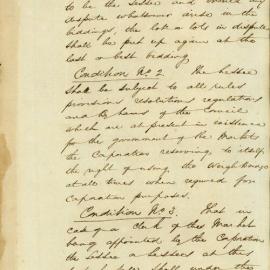 to be the Lessee and should any
dispute whatsoever arise in the
biddings, the lot or lots in dispute
shall be put up again at the
last or best bidding
Condition No 2. The Lessee
shall be subject to all rules
provisions resolutions regulations
and By laws of the Council
which are at present in existence
for the government of the Markets
the Corporation reserving to itself
the right of using the Weighbridge
at all times when required for
Corporation purposes.
Condition No 3. That in
case of a Clerk of the Market
being appointed by the Corporation
the Lessee or Lessees at this
shall under the